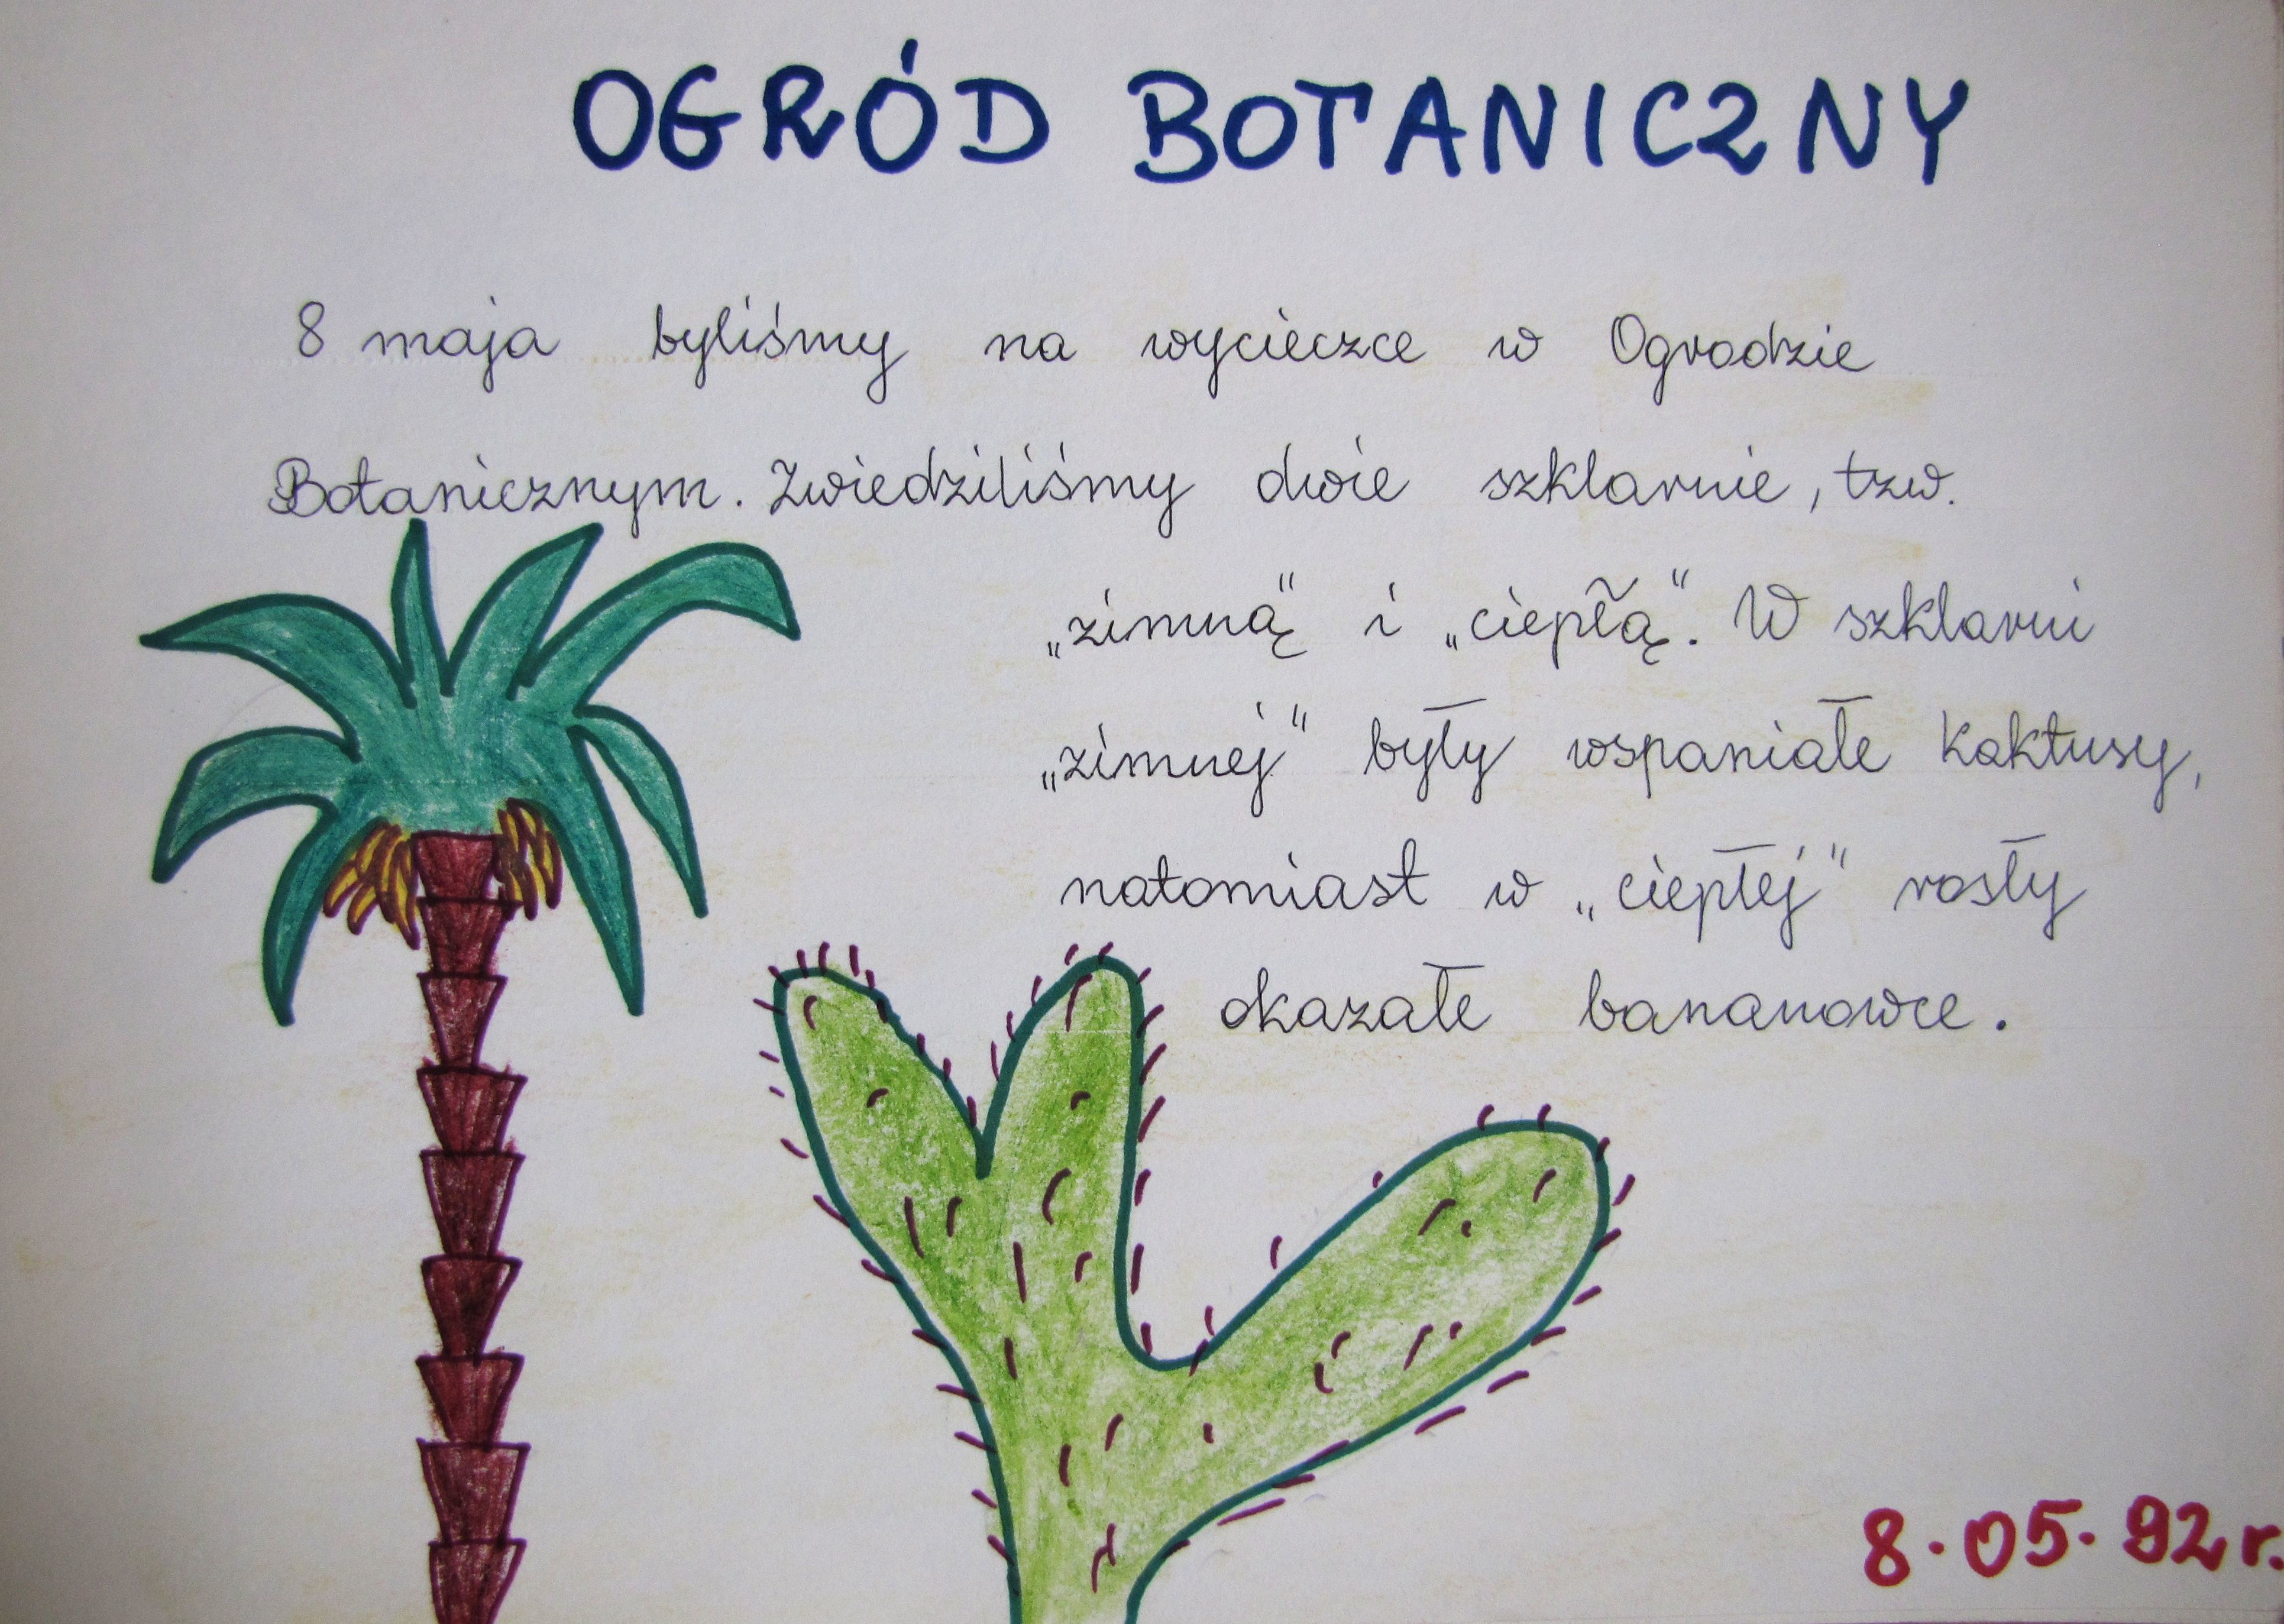 OGRÓD BOTANICZNY
8 maja byliśmy na wycieczce w Ogrodzie
Botanicznym. Zwiedziliśmy dwie szklarnie, tzw.
„zimną” i „ciepłą”. W szklarni
„zimnej” były wspaniałe kaktusy,
natomiast w „ciepłej” rosły
okazałe bananowce.
8.05.92r.